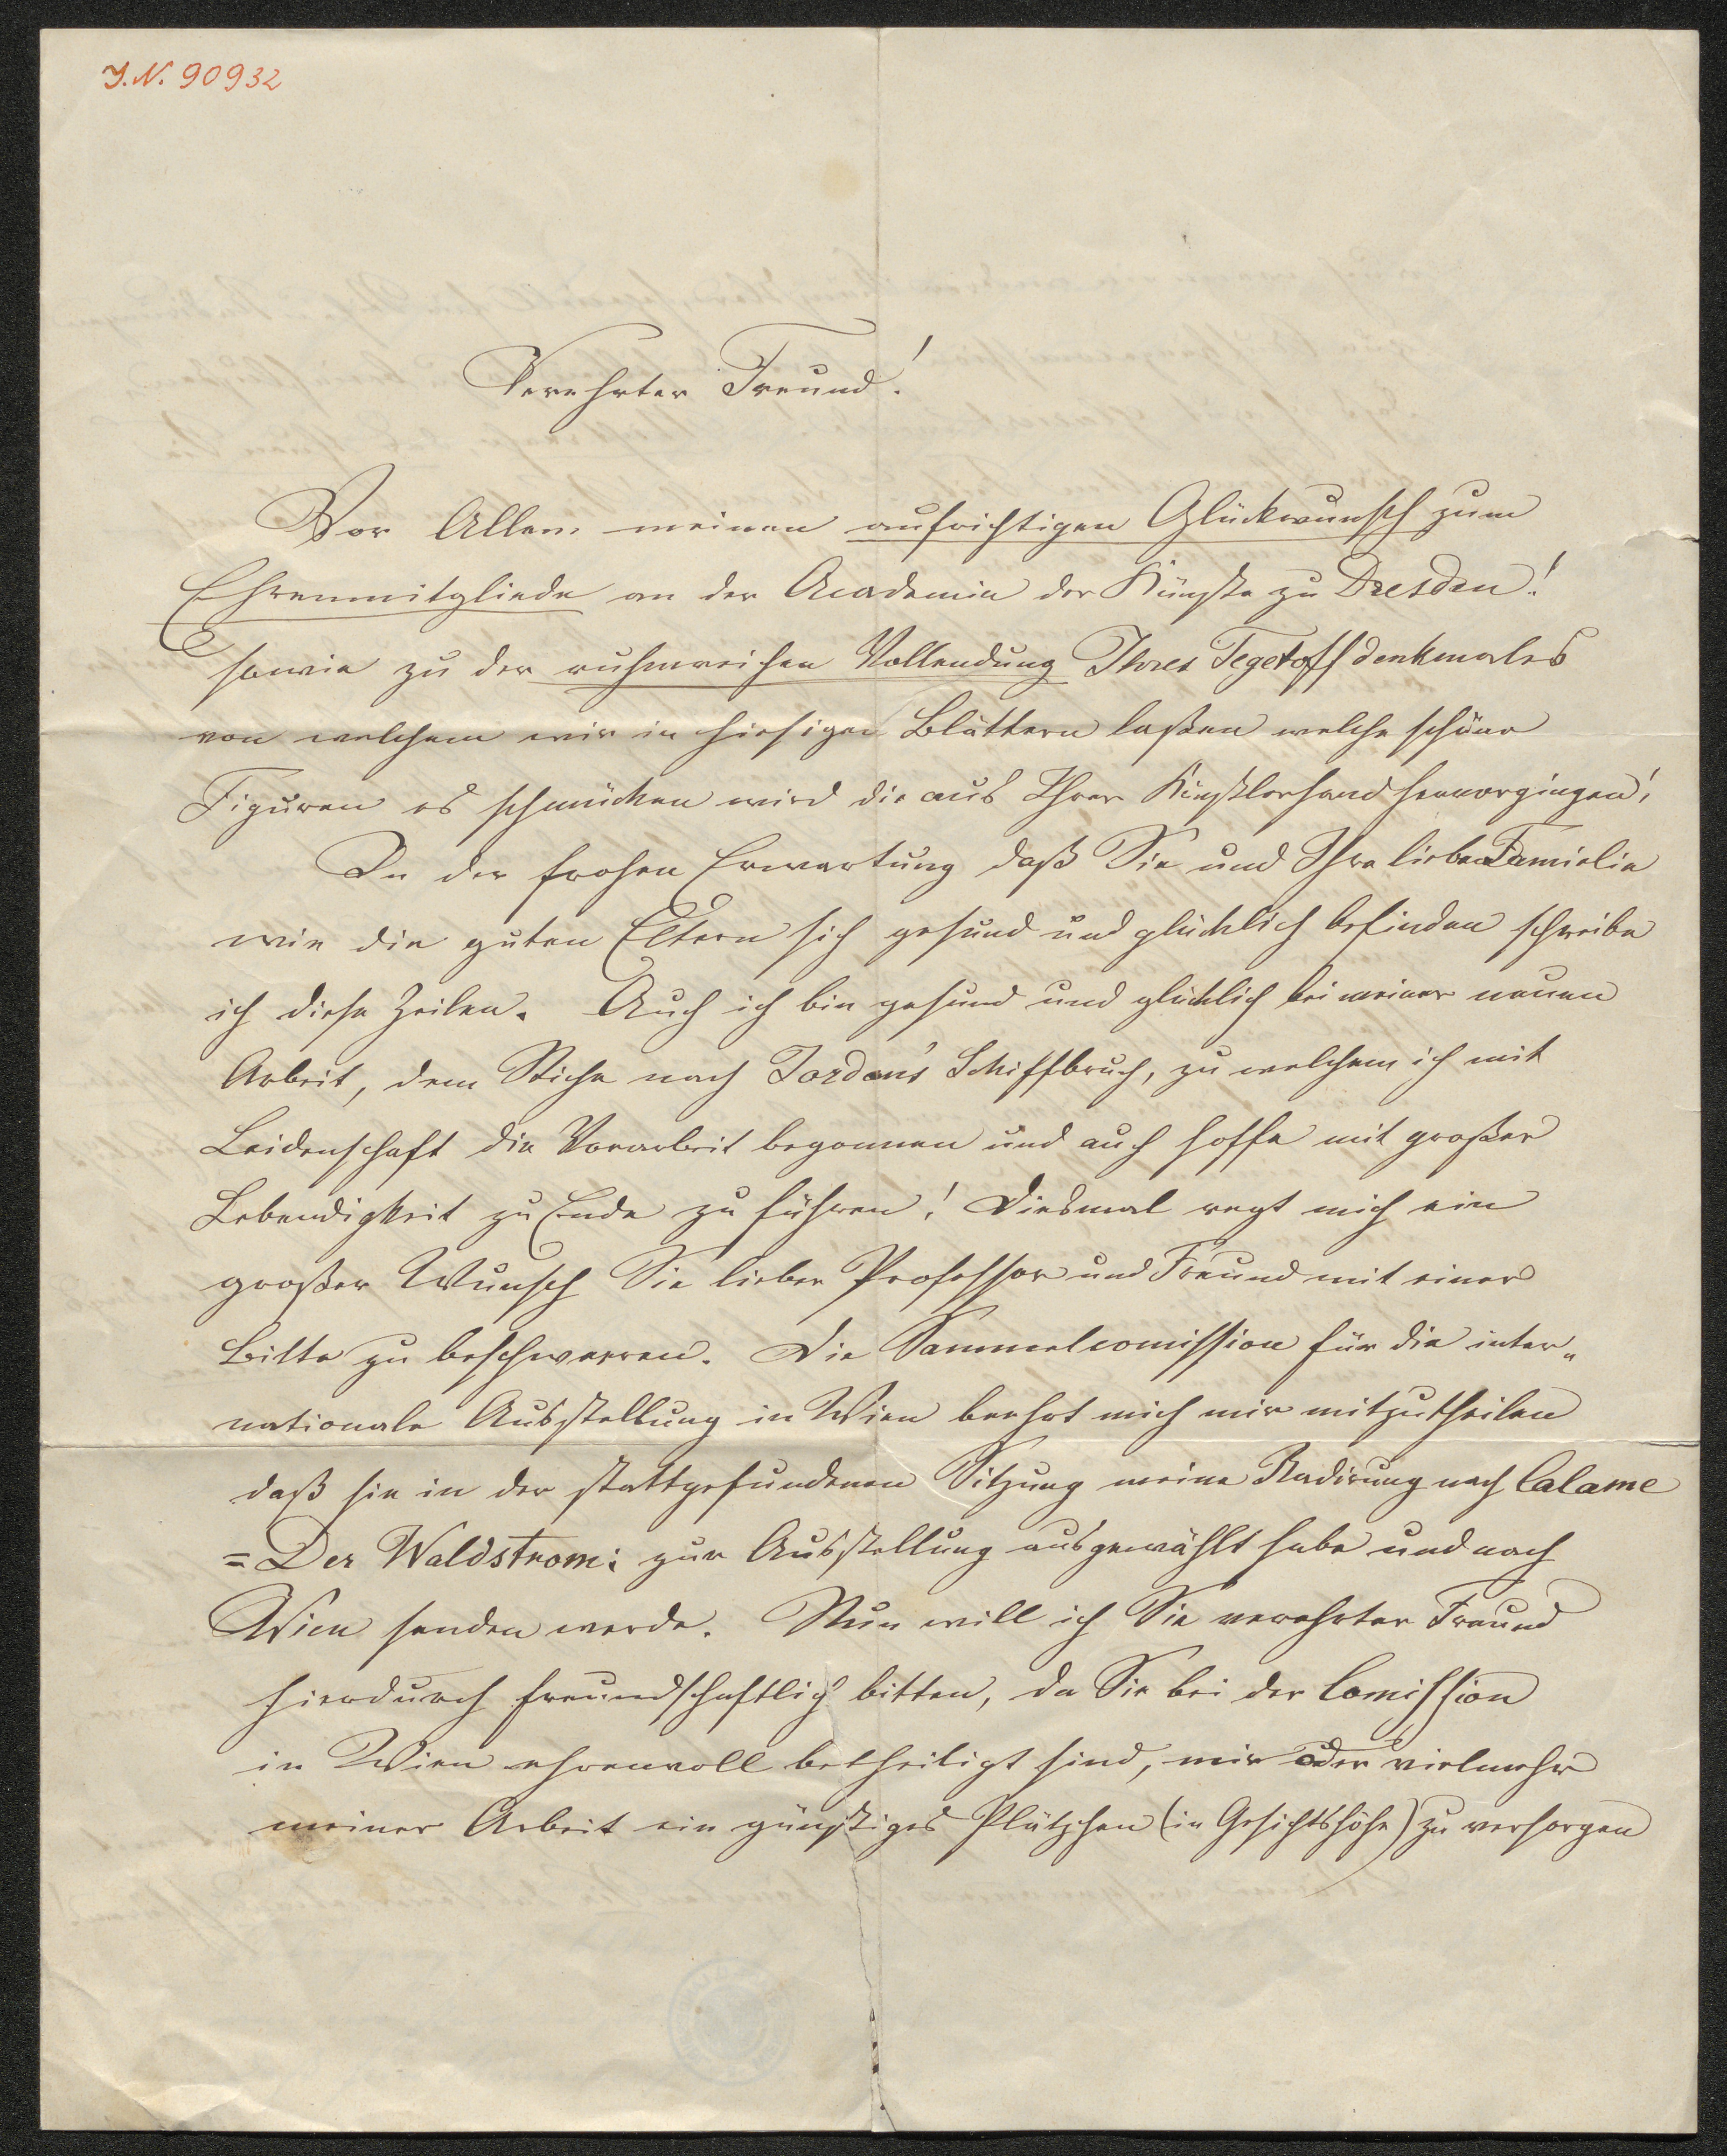 J.N. 90932
Verehrter Freund!
Vor Allem meinen aufrichtigen Glückwunsch zum
Ehrenmitgliede an der Academie der Künste zu Dresden!
sowie zu der ruhmreichen Vollendung Ihres Tegetoff denkmales
von welchem wir in hiesigen Blättern laßen welche schöne
Figuren es schmücken wird die aus Ihrer Künstlerhand hervorgingen!
In der frohen Erwartung daß Sie und Ihre lieben Famielie
wie die guten Eltern sich gesund und glücklich befinden schreibe
ich diese Zeilen. Auch ich bin gesund und glücklich bei meiner neuen
Arbeit, dem Stiche nach Jordan's Schiffbruch, zu welchem ich mit
Leidenschaft die Vorarbeit begonnen und auch hoffe mit großer
Lebendigkeit zu Ende zu führen! Diesmal regt mich ein
großer Wunsch Sie lieber Professor und Freund mit einer
Bitte zu beschwerren. Die Sammelcomission für die inter„
nationale Ausstellung in Wien beehrt mich mir mitzutheilen
daß sie in der stattgefundenen Sitzung meine Radirung nach Calame
= Der Waldstrom: zur Ausstellung ausgewählt habe und nach
Wien senden werde. Nun will ich Sie verehrter Freund
hierdurch freundschaftlich bitten, da Sie bei der Comission
in Wien ehrenvoll betheiligt sind, mir oder vielmehr
meiner Arbeit ein günstiges Plätzchen (in Gesichtshöhe) zu versorgen